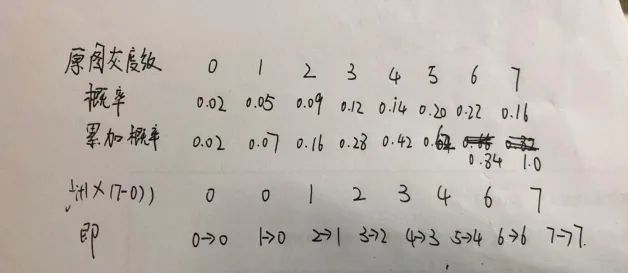 原图灰度级 0 1 2 3 4 5 6 7
概率 0.02 0.05 0.09 0.12 0.14 0.20 0.22 0.16
累加概率 0.02 0.07 0.16 0.28 0.42 0.84 1.0
×(7-0)) 0 0 1 2 3 4 6 7
即 0→0 1→0 2→1 3→2 4→3 5→4 6→6 7→7